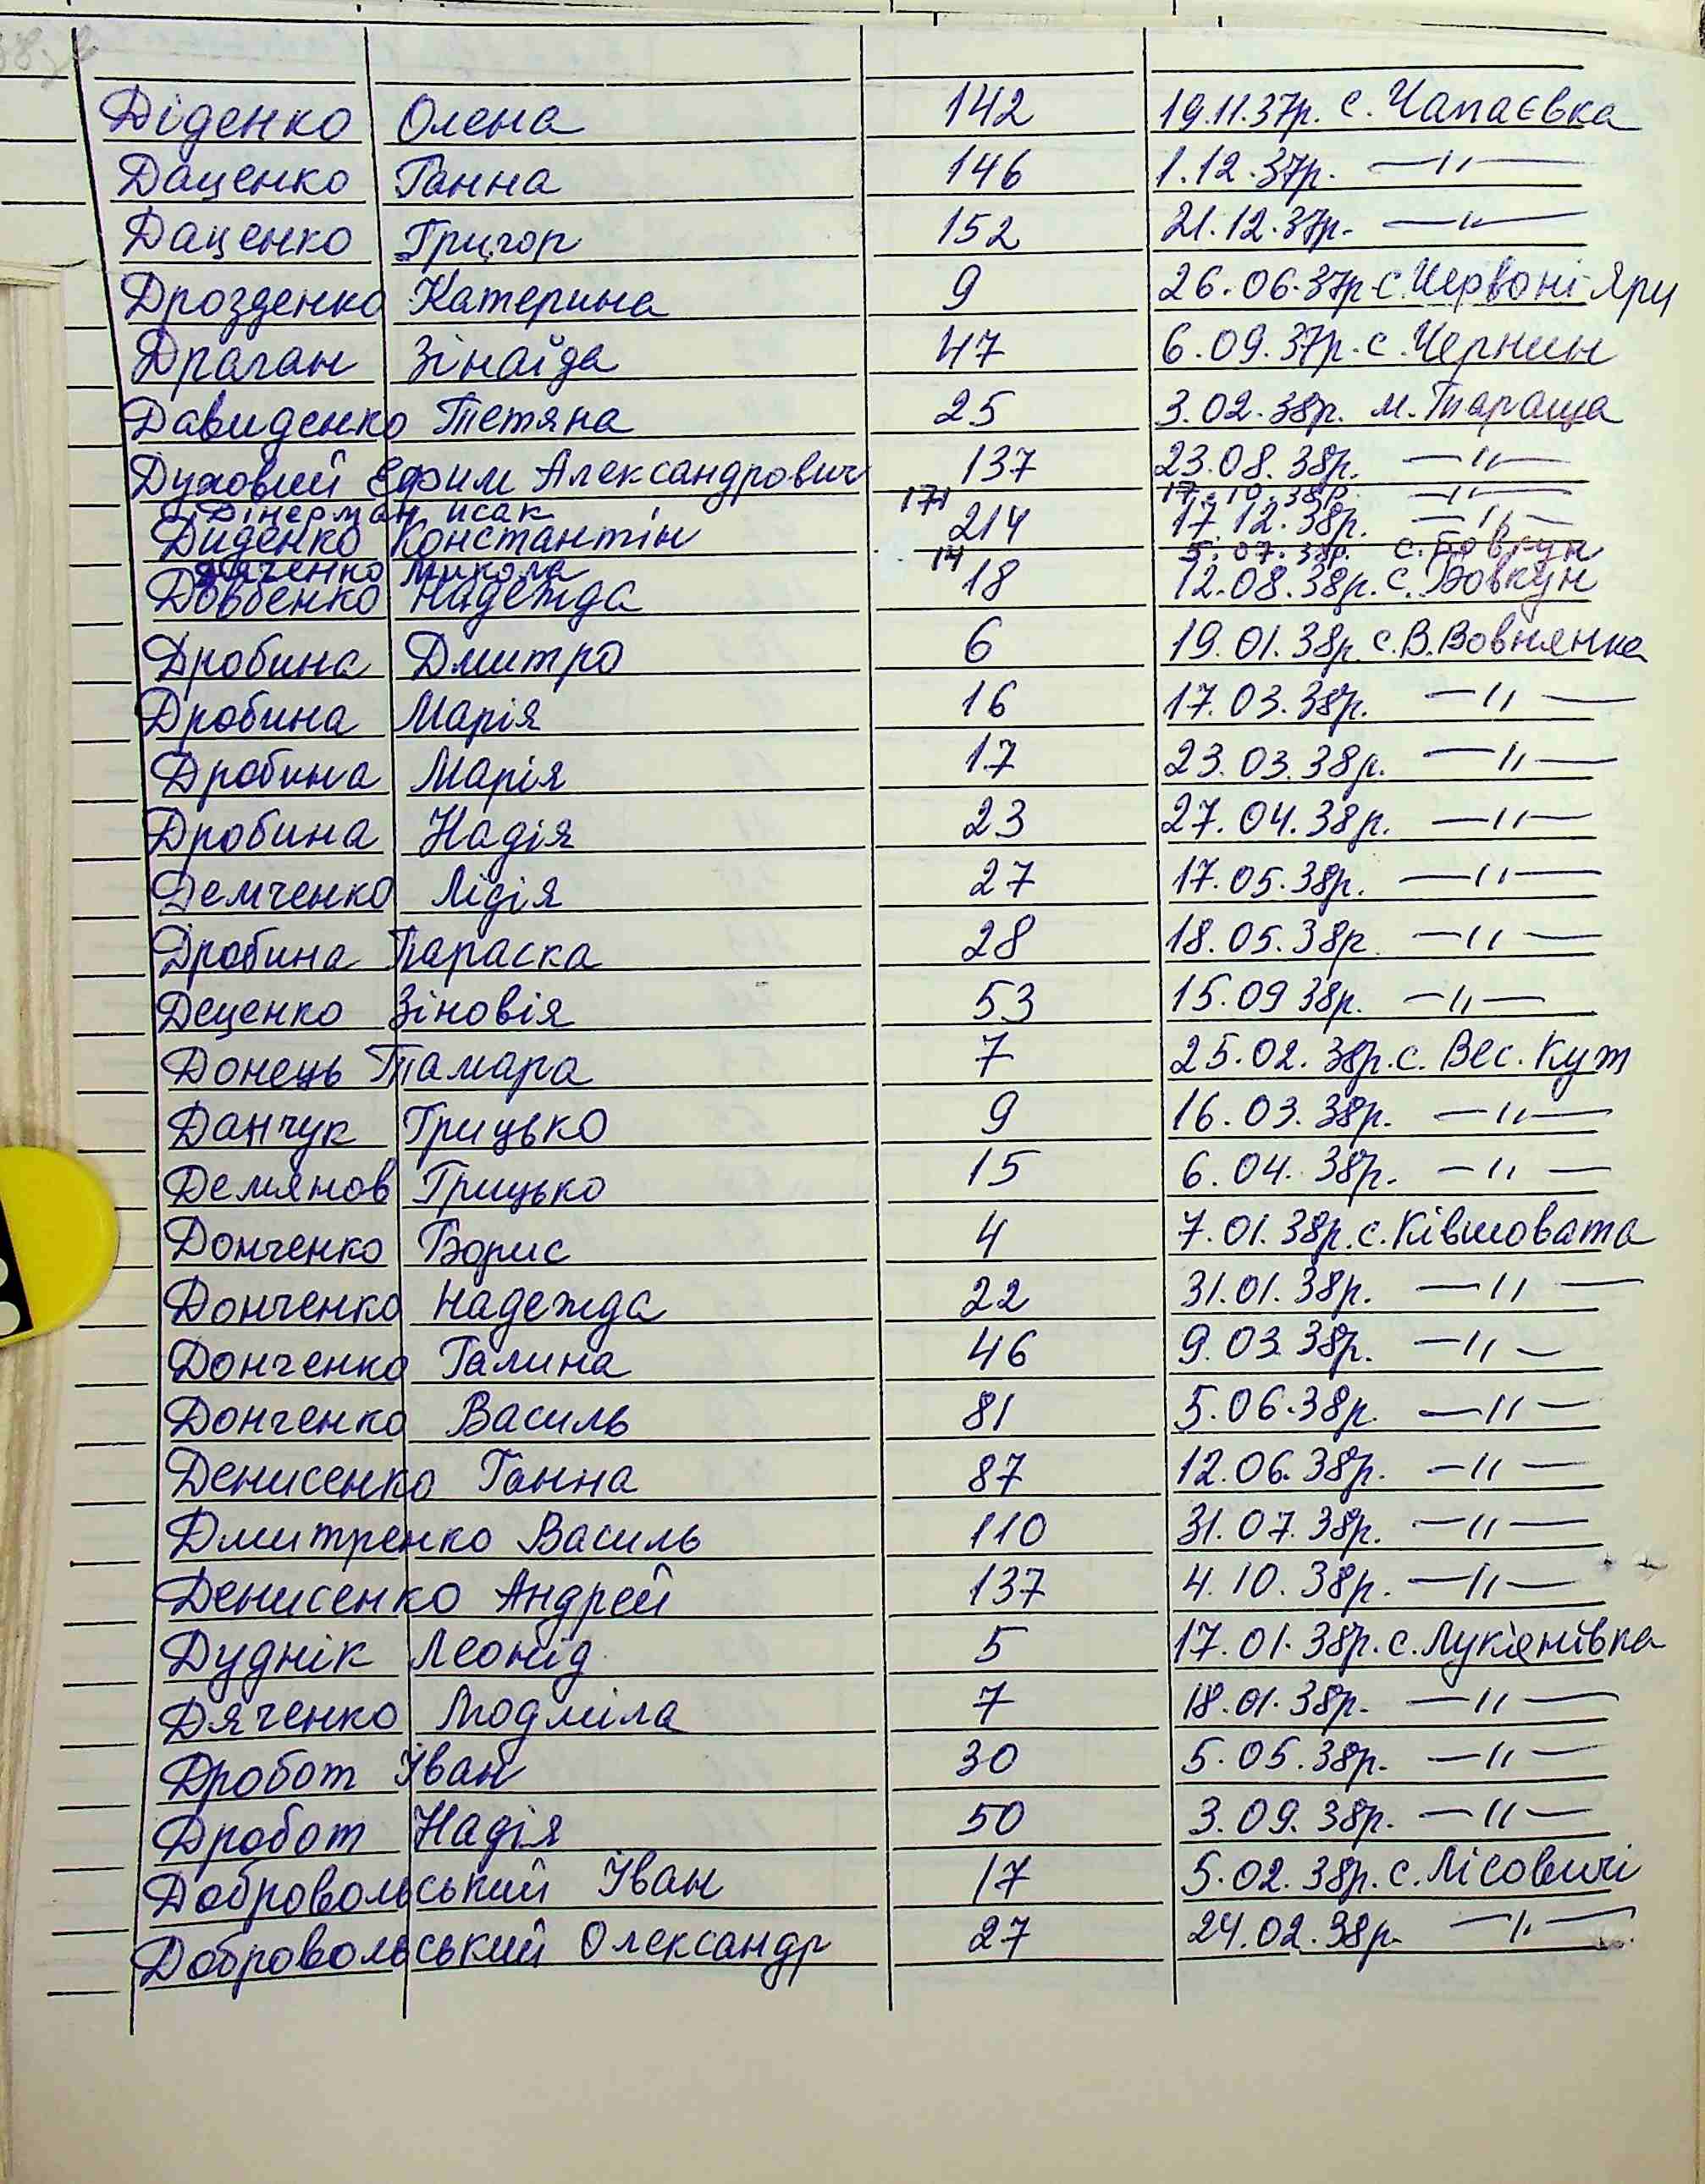 Діденко Олена 142 19.11.37р. с. Чапаєвка
Даценко Ганна 146 1.12.37р. —"—
Даценко Григор 152 21.12.37р. —"—
Дрозденко Катерина 9 26.06.37р с. Червоні Яри
Драган Зінаїда 47 6.09.37р. с. Чернин
Давиденко Тетяна 25 3.02.38р. м. Тараща
Духовий Ефим Александрович 137 23.08.38р. —"—
Дінерман Исак 171 17.10.38р. —"—
Диденко Константін 214 17.12.38р. —"—
Микола 14 5.07.38р. с. Бовкун
Довбенко Надежда 18 12.08.38р. с. Бовкун
Дробина Дмитро 6 19.01.38р. с. В. Вовнянка
Дробина Марія 16 17.03.38р. —"—
Дробина Марія 17 23.03.38р. —"—
Дробина Надія 23 27.04.38р. —"—
Демченко Лідія 27 17.05.38р. —"—
Дробина Параска 28 18.05.38р —"—
Деценко Зіновія 53 15.09 38р. —"—
Донець Тамара 7 25.02.38р. с. Вес. Кут
Данчук Грицько 9 16.03.38р. —"—
Демянов Грицько 15 6.04.38р. —"—
Донченко Борис 4 7.01.38р. с. Ківшовата
Донченко Надежда 22 31.01.38р. —"—
Донченко Галина 46 9.03.38р. —"—
Донченко Василь 81 5.06.38р. —"—
Денисенко Ганна 87 12.06.38р. —"—
Дмитренко Василь 110 31.07.38р. —"—
Денисенко Андрей 137 4.10.38р. —"—
Дуднік Леонід 5 17.01.38р. с. Лукянівка
Дяченко Людміла 7 18.01.38р. —"—
Дробот Іван 30 5.05.38р. —"—
Дробот Надія 50 3.09.38р. —"—
Добровольський Іван 17 5.02.38р. с. Лісовичі
Добровольський Олександр 27 24.02.38р. —"—